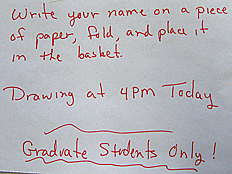 Write your name on a piece
of paper, fold, and place it
in the basket.
Drawing at 4PM Today
Graduate Students Only!